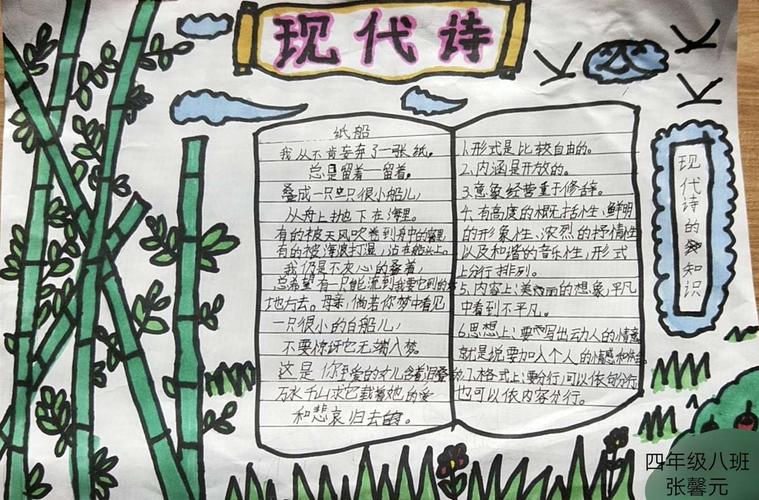 现代诗
纸船
我从不肯妄弃了一张纸。
总是留着—留着。
叠成一只只很小船儿，
从舟上抛下在海里。
有的被天风吹卷到舟中的窗里
有的被海浪打湿，沾在船头上。
我仍是不灰心的叠着，
总希望有一只能流到我要它到的
地方去。母亲，倘若你梦中看见
一只很小的白船儿，
不要惊讶它无端入梦。
这是你至爱的女儿含着泪叠的
万水千山求它载着她的爱
和悲哀归去。
1.形式是比较自由的。
2.内涵是开放的。
3.意象经营重于修辞。
4.有高度的概括性，鲜明
的形象性，浓烈的抒情性
以及和谐的音乐性，形式
上分行排列。
5.内容上：美丽的想象，平凡
中看到不平凡。
6.思想上：要写出动人的情意
就是说要加入个人的情感和
7.格式上：要分行，可以依句分行
也可以依内容分行。
现代诗的知识
四年级八班
张馨元